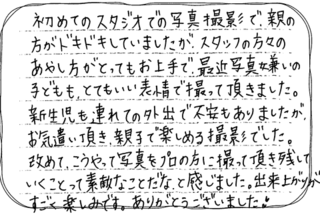 初めてのスタジオでの写真撮影で、親の
方がドキドキしていましたが、スタッフの方々の
あやし方がとってもお上手で、最近写真嫌いの
子どもも、とてもいい表情で撮って頂きました。
新生児も連れての外出で不安もありましたが、
お気遣い頂き、親子で楽しめる撮影でした。
改めて、こうやって写真をプロの方に撮って頂き残して
いくことって素敵なことだな、と感じました。出来上りが
すごく楽しみです。ありがとうございました!